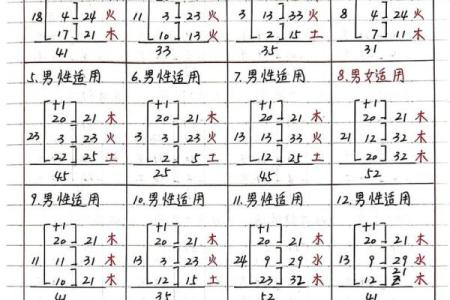 18 4 24 火 11 3 23 火 3 13 33 火 8 4 24 火
17 21 木 10 13 火 2 15 土 7 11 木
41 33 35 31
5.男性适用 6.男性适用 7.男性适用 8.男女适用
+1 +1 +1 +1
20 21 木 20 21 木 20 21 木 20 21 木
23 3 23 火 3 3 23 火 13 13 33 火 21 12 32 木
22 25 土 2 5 土 12 25 土 20 32 木
45 25 45 52
9.男性适用 10.男性适用 11.男性适用 12.男性适用
+1 +1 +1 +1
20 21 木 20 21 木 20 21 木 20 21 木
11 11 31 木 13 3 23 火 24 9 29 水 13 9 29 水
10 21 木 12 15 土 23 32 木 12 21 木
41 35 52